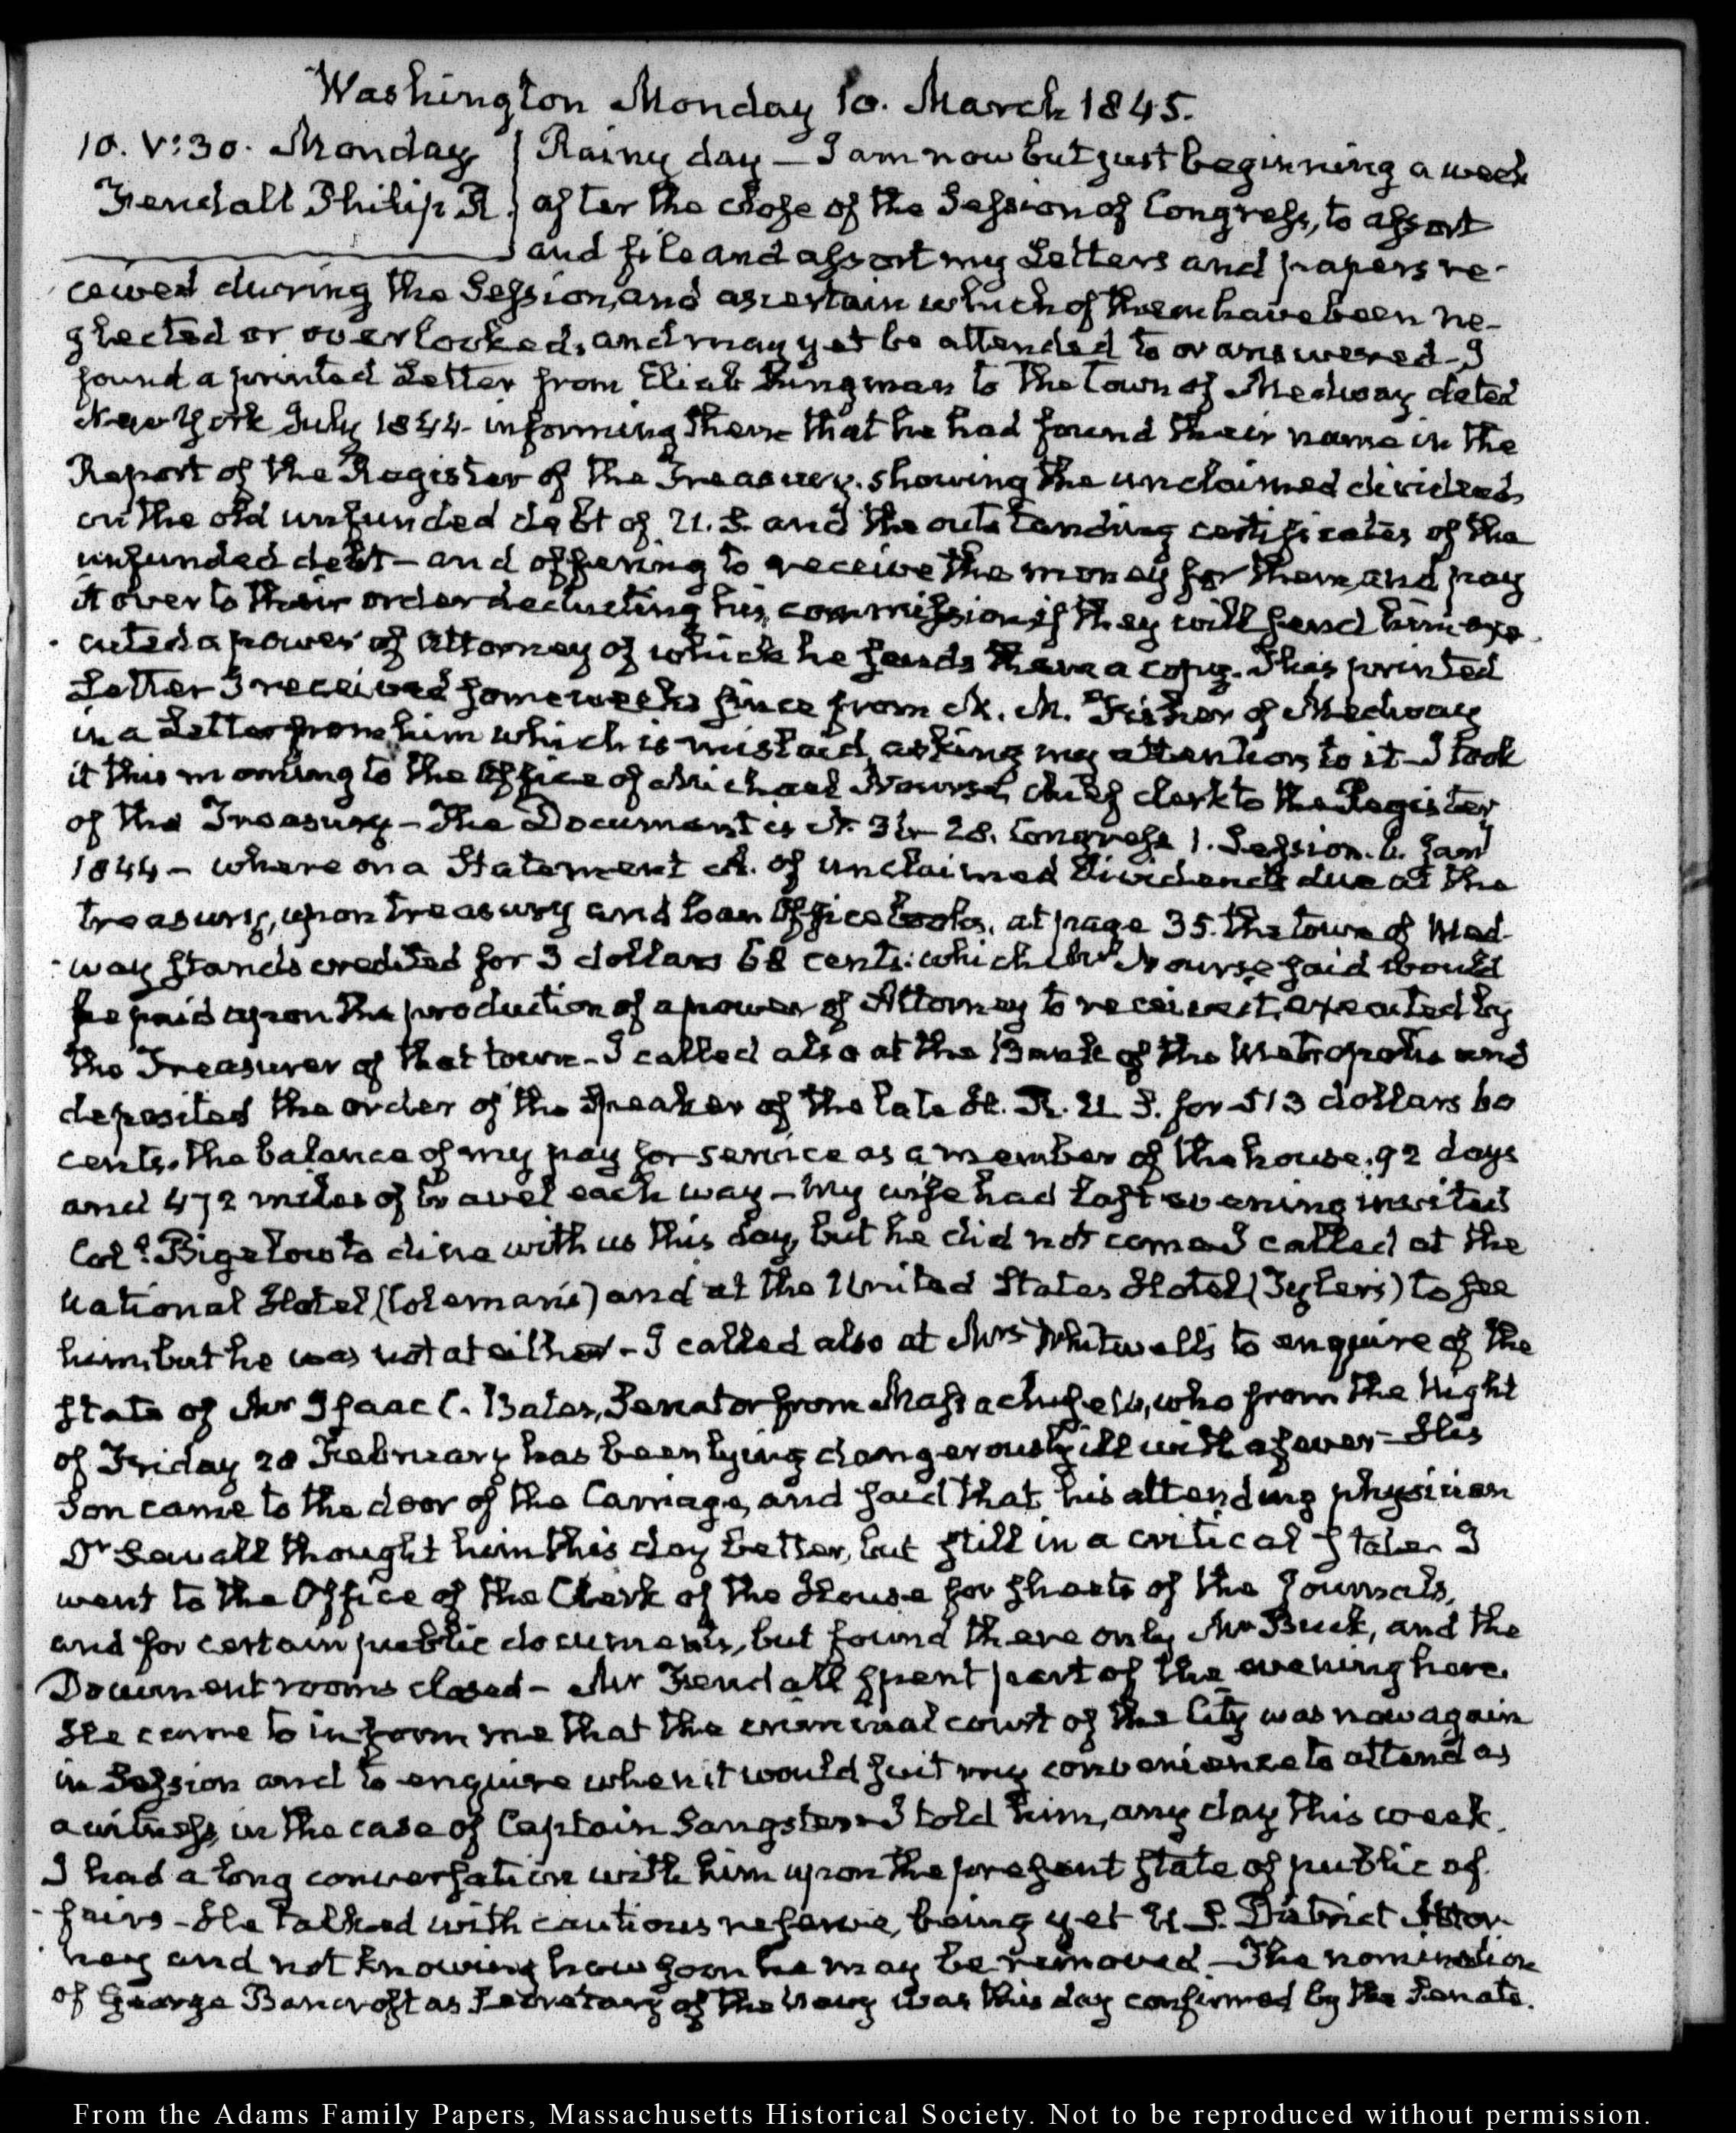 Washington Monday 10. March 1845.
10. V:30. Monday
Fendall Philip R.
Rainy day — I am now but just beginning a week
after the close of the Session of Congress, to assort
and file and assort my Letters and papers re-
ceived during the Session, and ascertain which of them have been ne-
glected or overlooked, and may yet be attended to or answered — I
found a printed Letter from Eliab Kingman to the Town of Medway dated
New York July 1844 informing them that he had found their name in the
Report of the Register of the Treasury, showing the unclaimed dividends
on the old unfunded debt of U.S. and the outstanding certificates of the
unfunded debt — and offering to receive the money for them, and pay
it over to their order deducting his commission if they will send him exe-
cuted a power of Attorney of which he sends them a copy. This printed
Letter I received some weeks since from M. M. Fisher of Medway
in a Letter from him which is mislaid, asking my attention to it — I took
it this morning to the Office of Michael Nourse, chief clerk to the Register
of the Treasury — The Document is N. 34 28. Congress 1. Session. 6. Jany
1844 — where on a Statement A. of unclaimed Dividends due at the
treasury, upon treasury and loan Office books, at page 35. the town of Med-
way stands credited for 3 dollars 68 cents: which Mr Nourse said would
be paid upon the production of a power of Attorney to receive it, executed by
the Treasurer of that town — I called also at the Bank of the Metropolis and
deposited the order of the Speaker of the late H. R. U. S. for 513 dollars 60
cents, the balance of my pay for service as a member of the house, 92 days
and 472 miles of travel each way — My wife had last evening invited
Coll. Bigelow to dine with us this day, but he did not come. I called at the
National Hotel (Colemans) and at the United States Hotel (Tylers) to see
him, but he was not at either — I called also at Mrs Whitwell's to enquire of the
state of Mr Isaac C. Bates, Senator from Massachusetts, who from the Night
of Friday 28 February has been lying dangerously ill with a fever — His
Son came to the door of the Carriage, and said that his attending physician
Dr Sewall thought him this day better, but still in a critical state. I
went to the Office of the Clerk of the House for sheets of the Journals,
and for certain public documents, but found there only Mr Buck, and the
Document rooms closed — Mr Fendall spent part of the evening here.
He came to inform me that the criminal court of the City was now again
in Session and to enquire when it would suit my convenience to attend as
a witness in the case of Captain Sangster — I told him, any day this week.
I had a long conversation with him upon the present state of public af-
fairs — He talked with cautious reserve, being yet U.S. District Attor-
ney and not knowing how soon he may be removed. — The nomination
of George Bancroft as Secretary of the Navy was this day confirmed by the Senate.
From the Adams Family Papers, Massachusetts Historical Society. Not to be reproduced without permission.